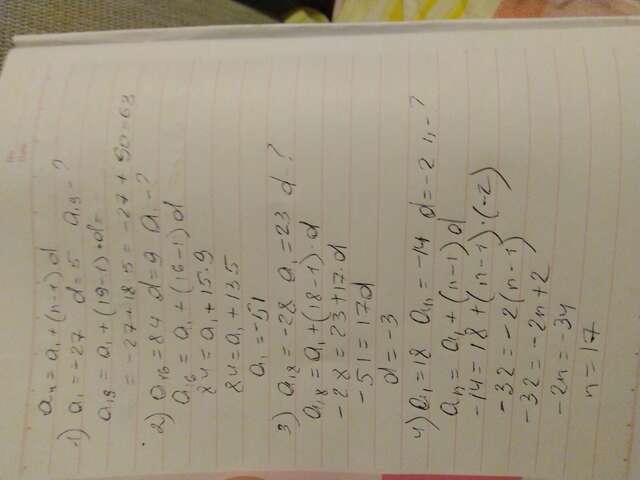 aₙ = a₁ + (n-1)d
1) a₁ = -27 d = 5 a₁₉ - ?
a₁₉ = a₁ + (19-1)·d =
= -27 + 18·5 = -27 + 90 = 63
2) a₁₆ = 84 d = 9 a₁ - ?
a₁₆ = a₁ + (16-1)d
84 = a₁ + 15·9
84 = a₁ + 135
a₁ = -51
3) a₁₈ = -28 a₁ = 23 d - ?
a₁₈ = a₁ + (18-1)·d
-28 = 23 + 17·d
-51 = 17d
d = -3
4) a₁ = 18 aₙ = -14 d = -2 n - ?
aₙ = a₁ + (n-1)d
-14 = 18 + (n-1)·(-2)
-32 = -2(n-1)
-32 = -2n + 2
-2n = -34
n = 17